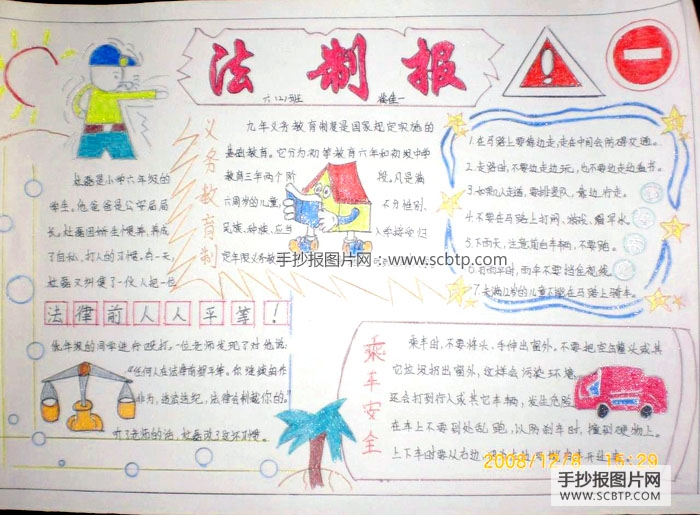 法制报
六(2)班
义务教育制
九年义务教育制度是国家规定实施的
基础教育。它分为初等教育六年和初级中学
教育三年两个阶段。凡是满
六周岁的儿童,不分性别、
民族、种族,应当入学接受
定年限义务教
杜磊是小学六年级的
学生,他爸爸是公安局局
长。杜磊因娇生惯养,养成
了自私、打人的习惯。有一天,
杜磊又纠集了一伙人把一位
法律前人人平等!
低年级的同学进行殴打。一位老师发现了对他说:
“任何人在法律前都平等。你继续胡作
非为,违法违纪,法律会制裁你的。”
听了老师的话,杜磊改了这坏习惯。
1.在马路上要靠边走,走在中间会妨碍交通。
2.走路时,不要边走边玩,也不要边走边看书。
3.如多人走道,要排纵队,靠边行走。
4.不要在马路上打闹、游戏、溜旱冰。
5.下雨天,注意避白车辆,不要跑。
6.打雨伞时,雨伞不要挡住视线。
7.未满12岁的儿童不能在马路上骑车。
乘车安全
乘车时,不要将头、手伸出窗外。不要把空品罐头或其
它垃圾扔出窗外,这样会污染环境,
还会打到行人或其它车辆,发生危险
在车上不要到处乱跑,以防刹车时,撞到硬物上。
上下车时要从右边,
手抄报图片网:www.scbtp.com
2008/12/8 15:29
手抄报图片网
WWW.SCBTP.COM